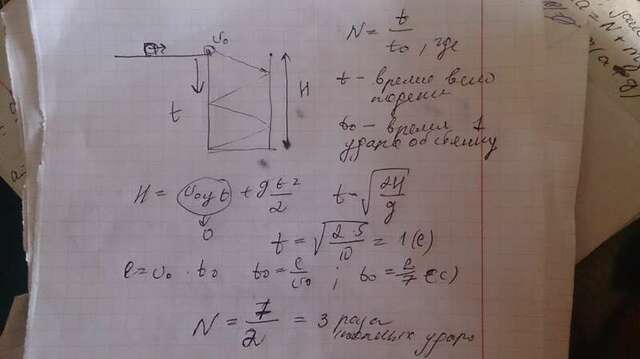 υ₀
t
H
N = t/t₀, где
t – время всего
падения
t₀ – время 1
удара об стенку
H = υ₀y t + gt²/2
0
t = √(2H/g)
t = √(2·5/10) = 1 (с)
l = υ₀ · t₀ t₀ = l/υ₀ ; t₀ = /7 (с)
N = 7/2 = 3 раза
ударов